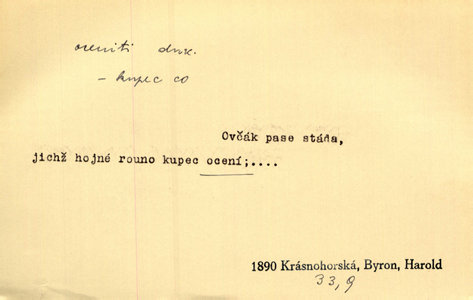 oceniti dok.
– kupec co
Ovčák pase stáda,
jichž hojné rouno kupec ocení;....
1890 Krásnohorská, Byron, Harold
33,9